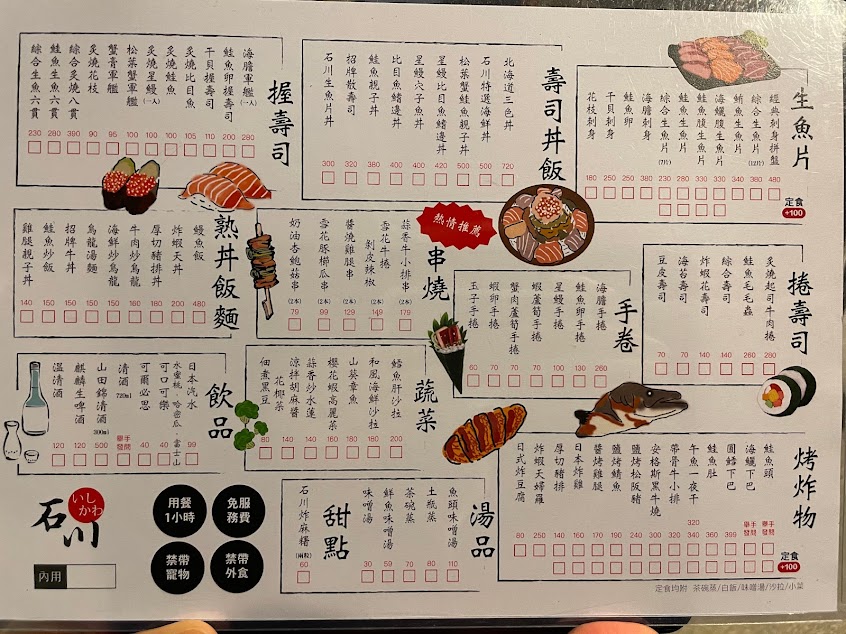 生魚片
經典刺身拼盤 480
綜合生魚片(12片) 380
鮪魚生魚片 340
海鱺腹生魚片 330
鮭魚腹生魚片 330
鮭魚生魚片 230
綜合生魚片(7片) 230
海膽刺身 380
鮭魚卵 350
干貝刺身 250
花枝刺身 180
定食
+100
壽司丼飯
北海道三色丼 720
石川特選海鮮丼 500
松葉蟹鮭魚親子丼 500
星鰻比目魚鰭邊丼 420
星鰻穴子魚丼 400
比目魚鰭邊丼 400
鮭魚親子丼 380
招牌散壽司 320
石川生魚片丼 300
握壽司
海膽軍艦(一入) 280
鮭魚卵握壽司 200
干貝握壽司 110
炙燒比目魚 105
炙燒鮭魚 100
炙燒星鰻(一入) 100
松葉蟹軍艦 100
蟹膏軍艦 95
炙燒花枝 90
綜合炙燒八貫 390
鮭魚生魚六貫 280
綜合生魚六貫 230
捲壽司
炙燒起司牛肉捲 280
鮭魚毛毛蟲 260
綜合壽司 120
炸蝦花壽司 140
海苔壽司 70
豆皮壽司 70
手卷
海膽手捲 260
鮭魚卵手捲 130
星鰻手捲 100
蝦蘆筍手捲 70
蟹肉蘆筍手捲 70
蝦卵手捲 70
玉子手捲 60
熱情推薦
串燒
蒜香牛小排串 179
雪花牛捲剝皮辣椒(2本) 149
醬燒雞腿串(2本) 129
雪花豚櫛瓜串(2本) 99
奶油杏鮑菇串(2本) 79
熟丼飯麵
鰻魚飯 480
炸蝦天丼 200
厚切豬排丼 180
牛肉炒烏龍 160
海鮮炒烏龍 150
烏龍湯麵 150
招牌牛丼 150
鮭魚炒飯 150
雞腿親子丼 140
烤炸物
鮭魚頭 舉手發問
海鱺下巴 舉手發問
圓鱈下巴 399
鮭魚肚 360
午魚一夜干 320
帶骨牛小排 340
安格斯黑牛燒 320
鹽烤松阪豬 300
鹽烤鯖魚 200
醬烤雞腿 240
日本炸雞 160
厚切豬排 140
炸蝦天婦羅 250
日式炸豆腐 80
定食
+100
定食均附 茶碗蒸/白飯/味噌湯/沙拉/小菜
蔬菜
鱈魚肝沙拉 200
和風海鮮沙拉 180
山葵章魚 160
櫻花蝦高麗菜 180
蒜香炒水蓮 160
涼拌胡麻醬花椰菜 140
佃煮黑豆 80
飲品
日本汽水 99
水蜜桃 哈密瓜 富士山
可口可樂 40
可爾必思 40
清酒 720ml 舉手發問
山田錦清酒 300ml 500
麒麟生啤酒 120
溫清酒 120
湯品
魚頭味噌湯 110
土瓶蒸 80
茶碗蒸 70
鮮魚味噌湯 59
味噌湯 30
甜點
石川炸麻糬(兩粒) 60
石川
いしかわ
內用
用餐
1小時
免服
務費
禁帶
寵物
禁帶
外食